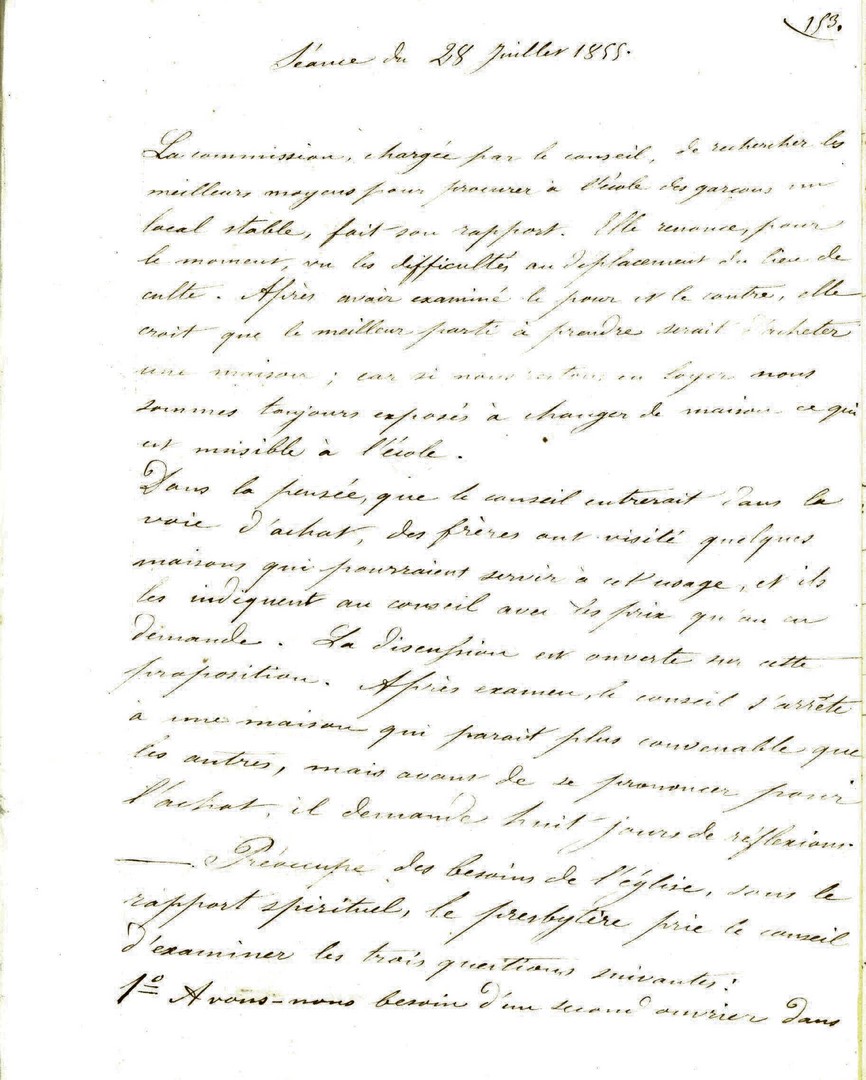 153.
Séance du 28 Juillet 1855.
La commission, chargée par le conseil, de rechercher les
meilleurs moyens pour procurer à l'école des garçons un
local stable, fait son rapport. Elle renonce, pour
le moment, vu les difficultés au déplacement du lieu de
culte. Après avoir examiné le pour et le contre, elle
croit que le meilleur parti à prendre serait d'acheter
une maison ; car si nous restons en loyer nous
sommes toujours exposés à changer de maison ce qui
est nuisible à l'école.
Dans la pensée, que le conseil entrerait dans la
voie d'achat, des frères ont visité quelques
maisons qui pourraient servir à cet usage, et ils
les indiquent au conseil avec les prix qu'on en
demande. La discussion est ouverte sur cette
proposition. Après examen, le conseil s'arrête
à une maison qui parait plus convenable que
les autres, mais avant de se prononcer pour
l'achat, il demande huit jours de réflexions.
—— Préoccupé des besoins de l'église, sous le
rapport spirituel, le presbytère prie le conseil
d'examiner les trois questions suivantes :
1º Avons-nous besoin d'un second ouvrier dans